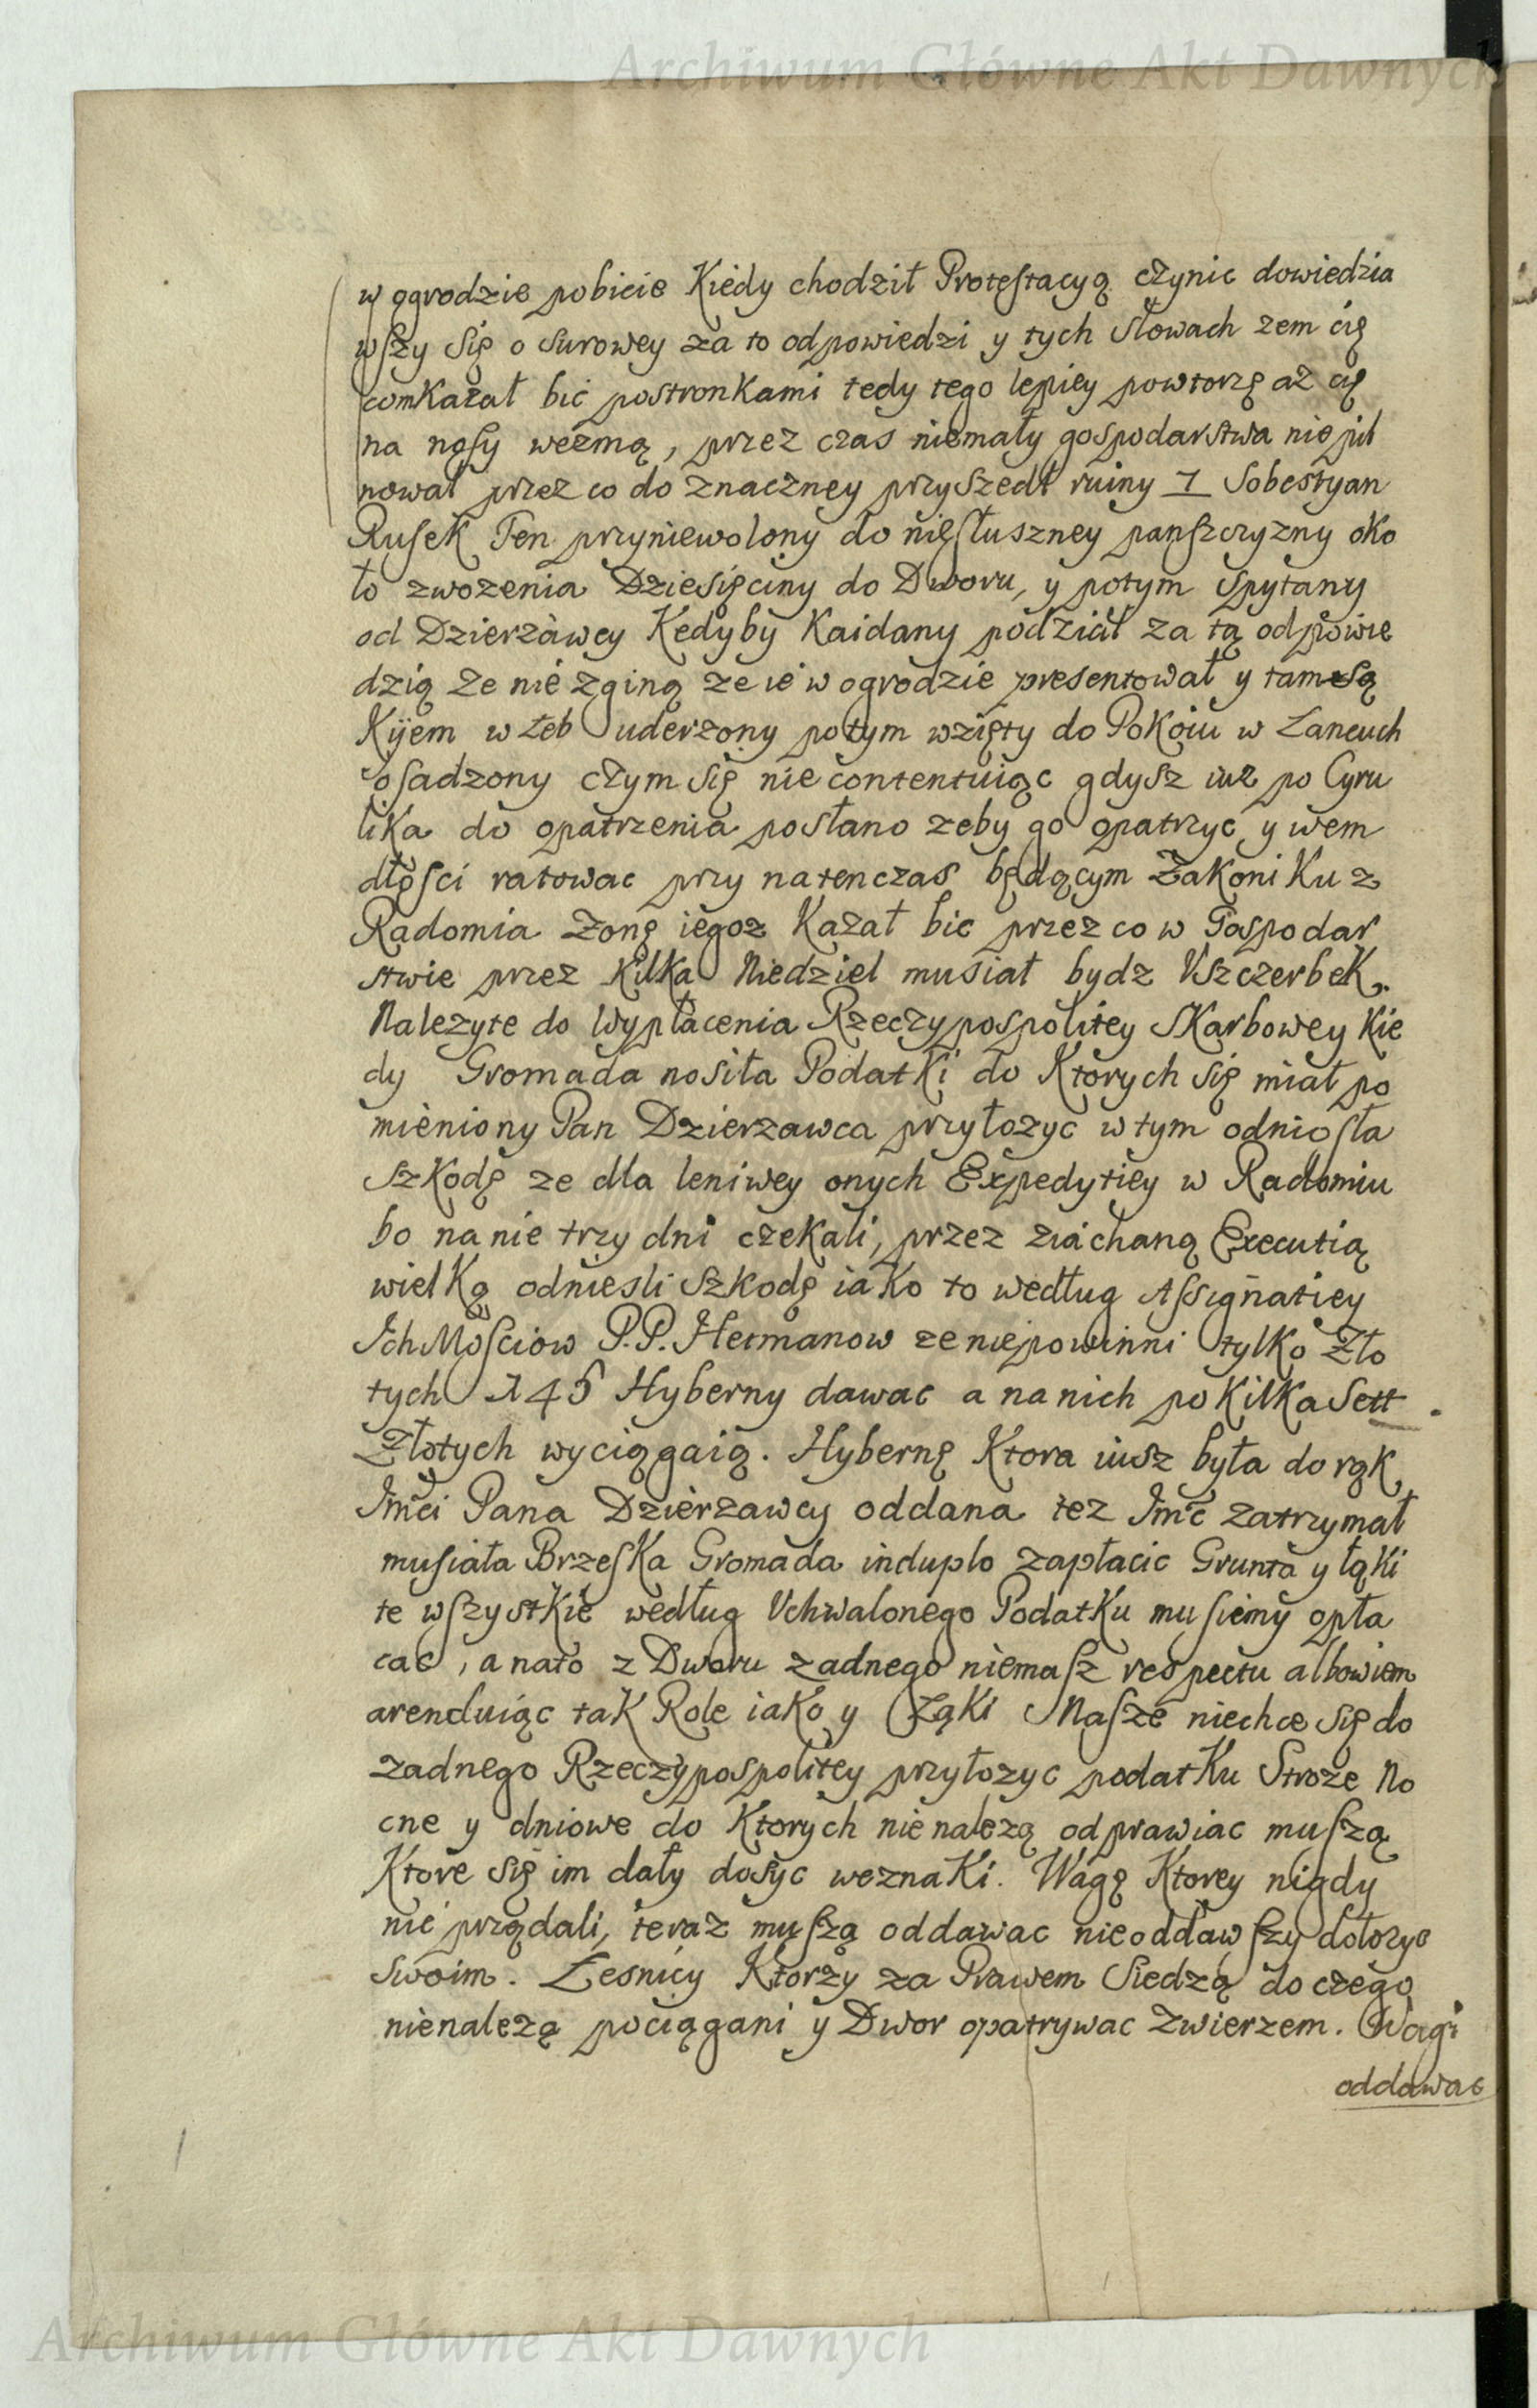 Archiwum Główne Akt Dawnych
w ogrodzie pobicie Kiedy chodził Protestacyą czynic dowiedzia
wszy się o surowey za to odpowiedzi y tych słowach zem cię
comKazał bić postronKami tedy tego lepiey powtorzę aż cię
na nosy wezmą, przez czas niemały gospodarstwa nie pil
nował przez co do znaczney przyszedł ruiny 7 Sobestyan
Rusek Ten przyniewolony do niesłuszney panszczyzny oko
ło zwozenia Dziesięciny do Dworu, y potym spytany
od Dzierzawcy Kedyby Kaidany podział za tą odpowie
dzią ze nie zginą ze ie w ogrodzie presentował y tam
Kijem w Łeb uderzony potym wzięty do PoKoiu w Łancuch
osadzony czym się niecontentuiąc gdysz iuz po Cyru
liKa do opatrzenia posłano zeby go opatrzyc y wem
dłości ratowac przy natenczas będącym ZakoniKu z
Radomia Zonę iegoz Kazał bic przez co w Gospodar
stwie przez KilKa Niedziel musiał bydz VszczerbeK.
Nalezyte do Wypłacenia Rzeczypospolitey SKarbowey Kie
dy Gromada nosiła PodatKi do Ktorych się miał po
mieniony Pan Dzierzawca przyłozyc w tym odniosła
szKodę ze dla leniwey onych Expedytiey w Radomiu
bo na nie trzy dni czeKali, przez ziachaną Executią
wielKą odniesli szkodę iaKo to według Assignatiey
Ich Mosciow P.P. Hetmanow ze niepowinni tylKo Zło
tych 145 Hyberny dawac a na nich po KilKa Sett
Złotych wyciągaią. Hybernę Ktora iusz była do rąK
Jmci Pana Dzierzawcy oddana tez Jmc zatrzymał
musiała BrzesKa Gromada induplo zapłacic Grunta y łąKi
te wszystKie według Vchwalonego PodatKu musiemy opła
cac, a nato z Dworu zadnego niemasz respectu albowiem
arenduiąc taK Role iaKo y ŁąKi Nasze niechce się do
zadnego Rzeczypospolitey przyłozyc podatKu Stroze No
cne y dniowe do Ktorych nie nalezą odprawiac muszą
Ktore się im dały dosyc weznaKi. Wagę Ktorey nigdy
nie prządali, teraz muszą oddawac nieoddawszy dołozyc
swoim. Lesnicy Ktorzy za Prawem Siedzą do czego
nienalezą pociągani y Dwor opatrywac Zwierzem. Wagi
oddawac
Archiwum Główne Akt Dawnych